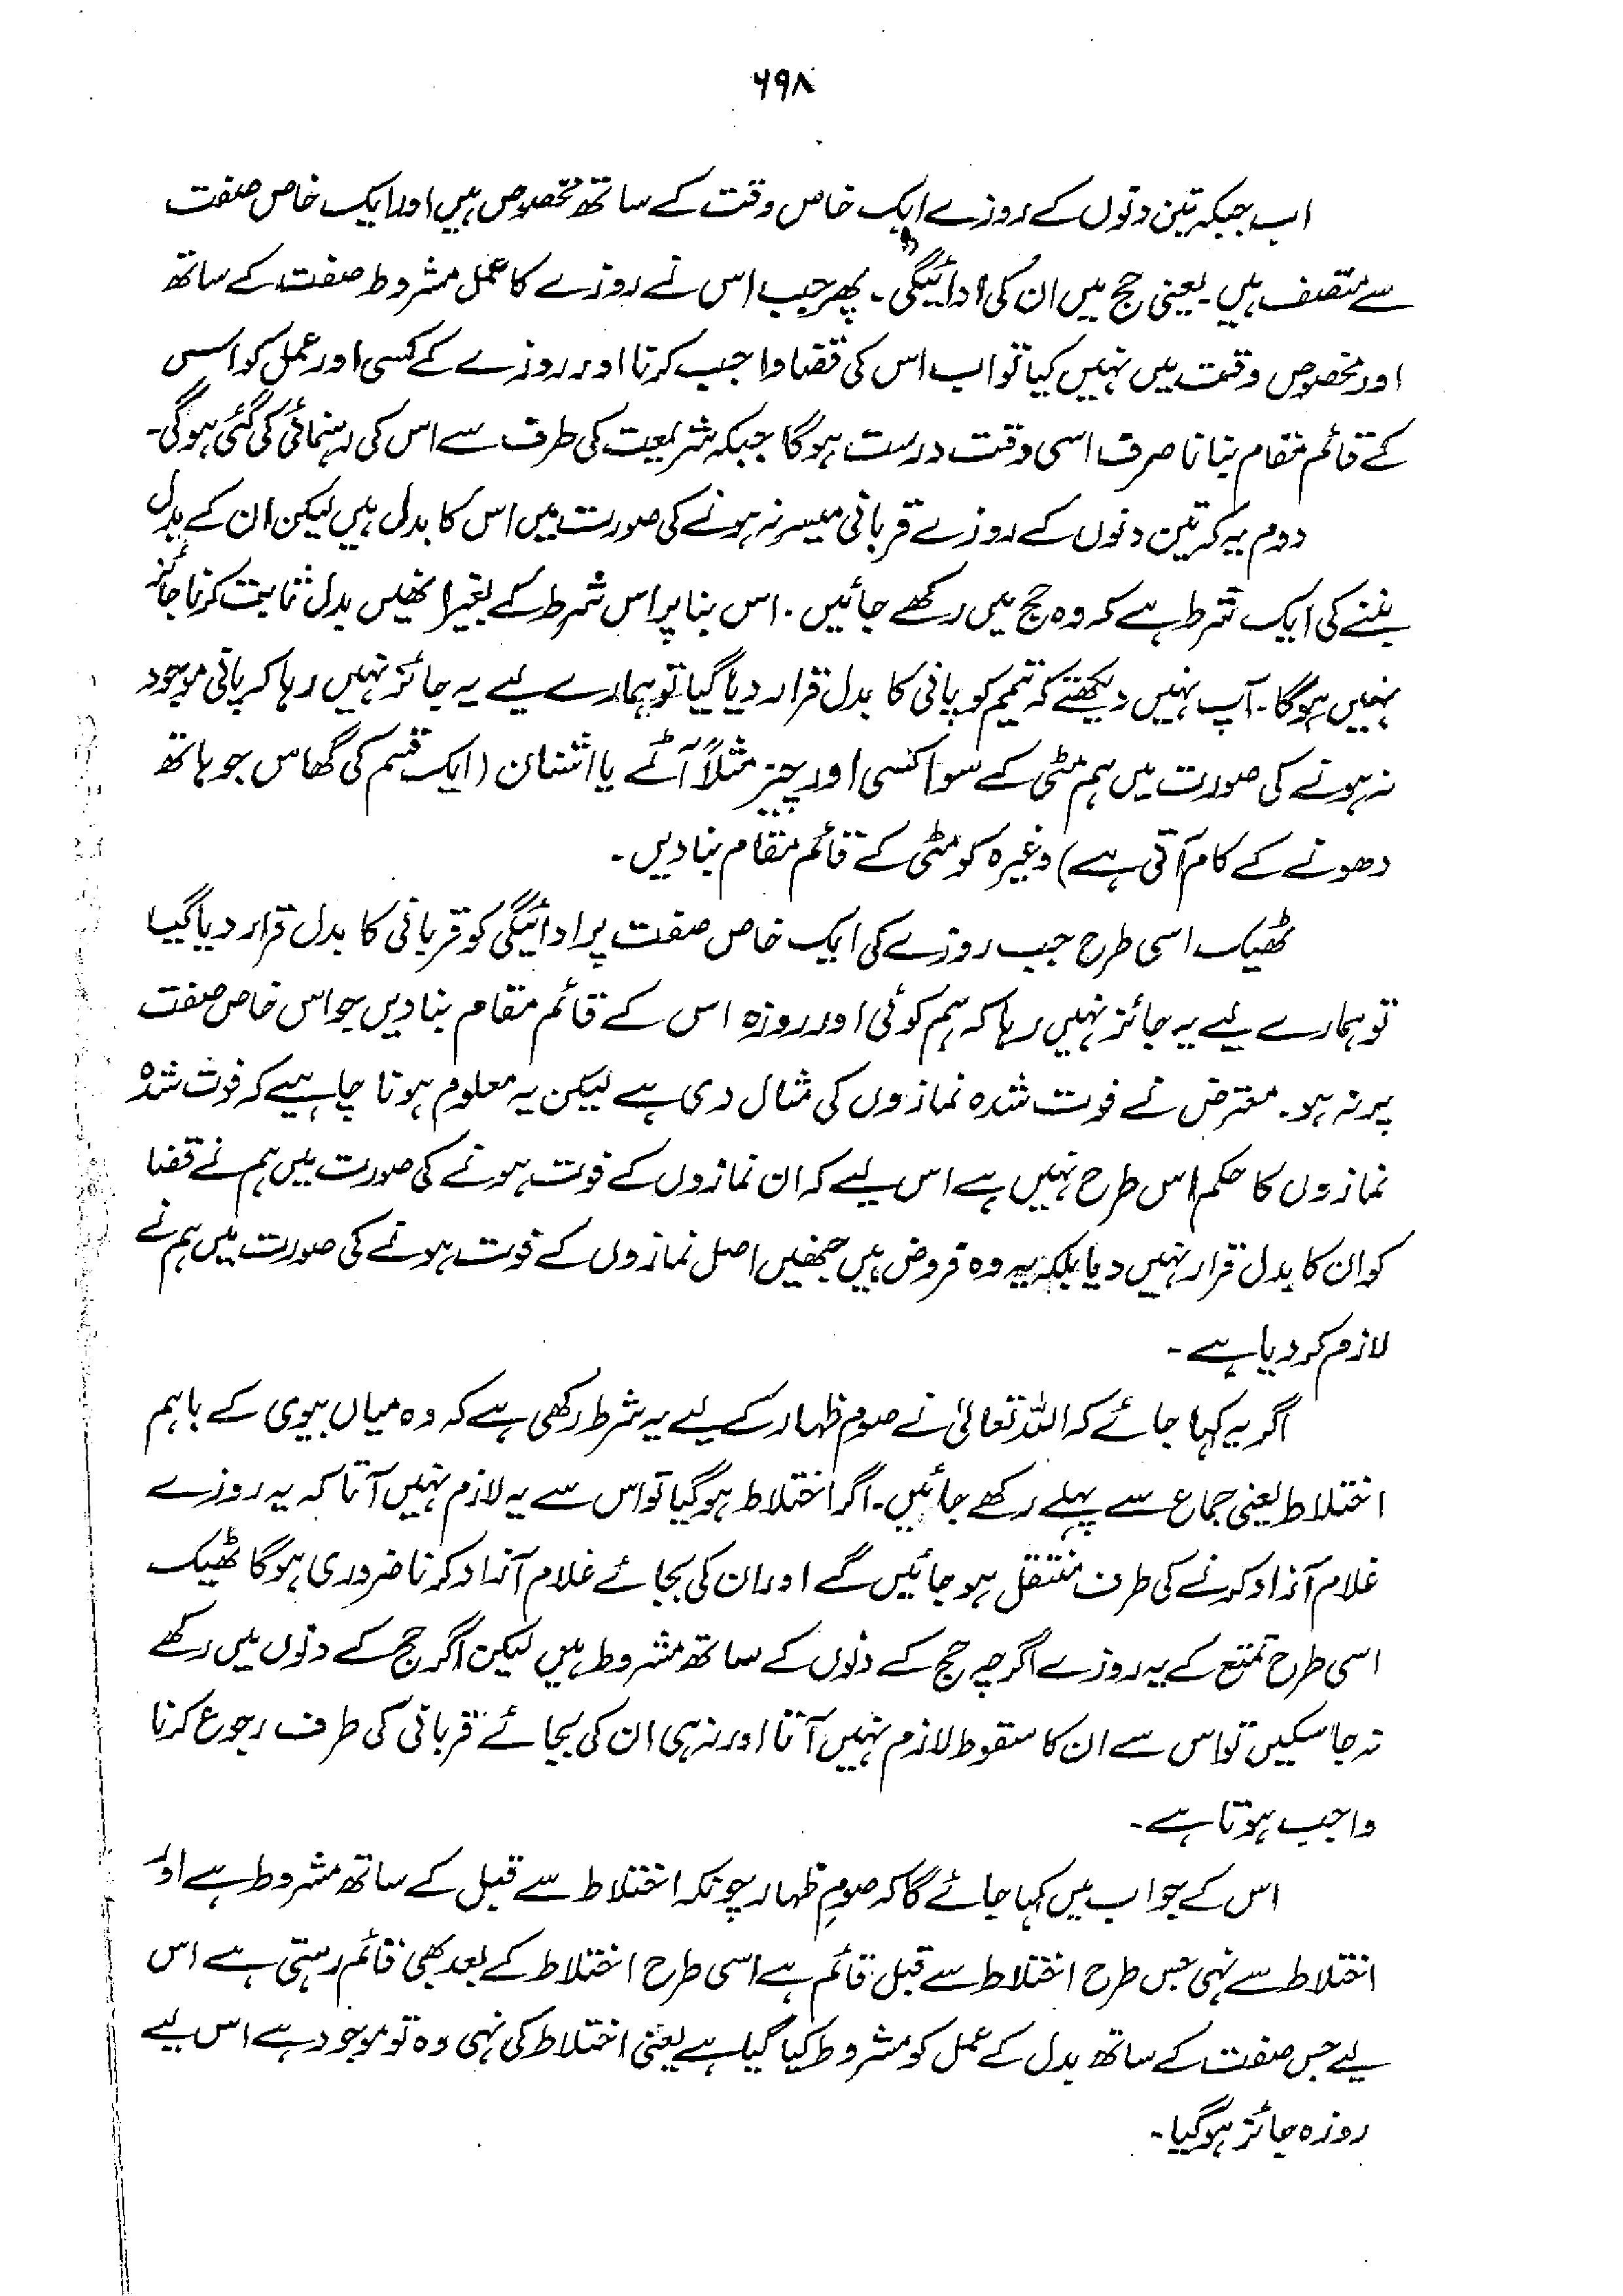 ۶۹۸
اب جبکہ تین دنوں کے روزے ایک خاص وقت کے ساتھ مخصوص ہیں اور ایک خاص صفت
سے متصف ہیں۔ یعنی حج میں ان کی ادائیگی۔ پھر جب اس نے روزے کا عمل مشروط صفت کے ساتھ
اور مخصوص وقت میں نہیں کیا تو اب اس کی قضا واجب کرنا اور روزے کے کسی اور عمل کو اس
کے قائم مقام بنانا صرف اسی وقت درست ہوگا جبکہ شریعت کی طرف سے اس کی رہنمائی کی گئی ہوگی۔
دوم یہ کہ تین دنوں کے روزے قربانی میسر نہ ہونے کی صورت میں اس کا بدل ہیں لیکن ان کے بدل
بننے کی ایک شرط ہے کہ وہ حج میں رکھے جائیں۔ اس بنا پر اس شرط کے بغیر انھیں بدل ثابت کرنا جائز
نہیں ہوگا۔ آپ نہیں دیکھتے کہ تیمم کو پانی کا بدل قرار دیا گیا تو ہمارے لیے یہ جائز نہیں رہا کہ پانی موجود
نہ ہونے کی صورت میں ہم مٹی کے سوا کسی اور چیز مثلاً آٹے یا اشنان (ایک قسم کی گھاس جو ہاتھ
دھونے کے کام آتی ہے) وغیرہ کو مٹی کے قائم مقام بنا دیں۔
ٹھیک اسی طرح جب روزے کی ایک خاص صفت پر ادائیگی کو قربانی کا بدل قرار دیا گیا
تو ہمارے لیے یہ جائز نہیں رہا کہ ہم کوئی اور روزہ اس کے قائم مقام بنا دیں جو اس خاص صفت
پر نہ ہو۔ معترض نے فوت شدہ نمازوں کی مثال دی ہے لیکن یہ معلوم ہونا چاہیے کہ فوت شدہ
نمازوں کا حکم اس طرح نہیں ہے اس لیے کہ ان نمازوں کے فوت ہونے کی صورت میں ہم نے قضا
کو ان کا بدل قرار نہیں دیا بلکہ یہ وہ فروض ہیں جنھیں اصل نمازوں کے فوت ہونے کی صورت میں ہم نے
لازم کر دیا ہے۔
اگر یہ کہا جائے کہ اللہ تعالیٰ نے صوم ظہار کے لیے یہ شرط رکھی ہے کہ وہ میاں بیوی کے باہم
اختلاط یعنی جماع سے پہلے رکھے جائیں۔ اگر اختلاط ہوگیا تو اس سے یہ لازم نہیں آتا کہ یہ روزے
غلام آزاد کرنے کی طرف منتقل ہو جائیں گے اور ان کی بجائے غلام آزاد کرنا ضروری ہوگا ٹھیک
اسی طرح تمتع کے یہ روزے اگرچہ حج کے دنوں کے ساتھ مشروط ہیں لیکن اگر حج کے دنوں میں رکھے
نہ جا سکیں تو اس سے ان کا سقوط لازم نہیں آتا اور نہ ہی ان کی بجائے قربانی کی طرف رجوع کرنا
واجب ہوتا ہے۔
اس کے جواب میں کہا جائے گا کہ صومِ ظہار چونکہ اختلاط سے قبل کے ساتھ مشروط ہے اور
اختلاط سے نہی جس طرح اختلاط سے قبل قائم ہے اسی طرح اختلاط کے بعد بھی قائم رہتی ہے اس
لیے جس صفت کے ساتھ بدل کے عمل کو مشروط کیا گیا ہے یعنی اختلاط کی نہی وہ تو موجود ہے اس لیے
روزہ جائز ہوگیا۔